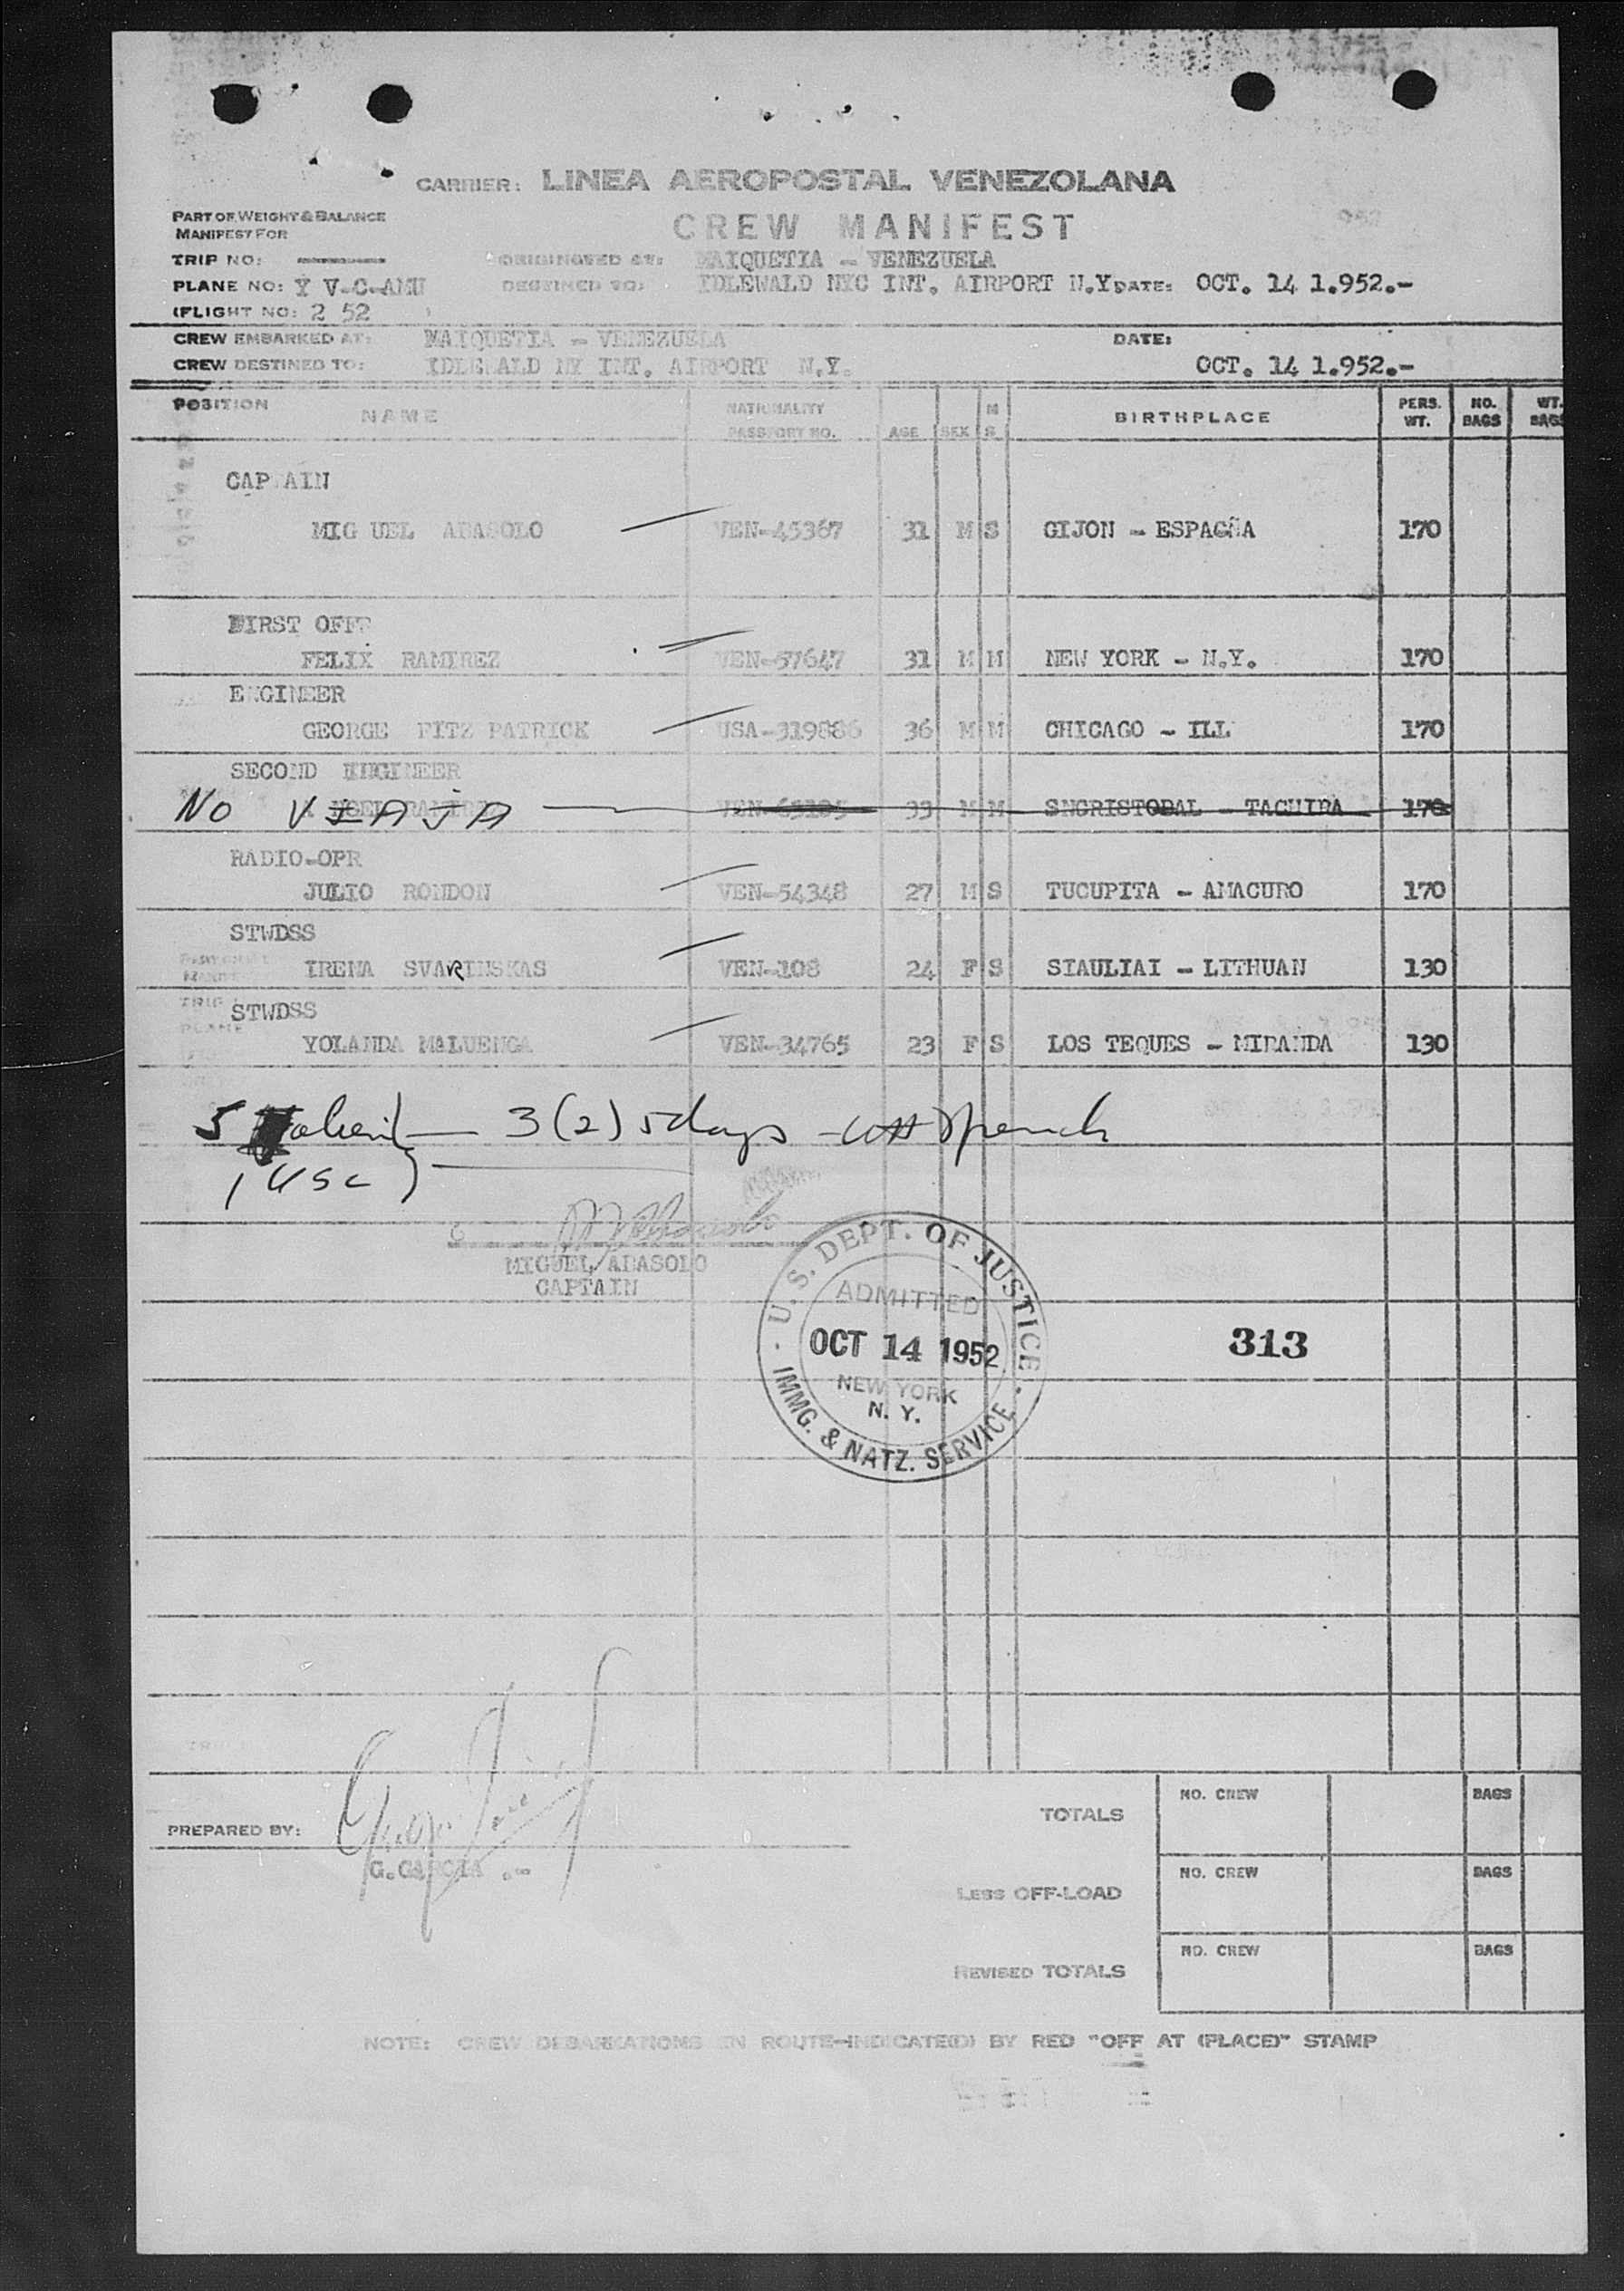 CARRIER: LINEA AEROPOSTAL VENEZOLANA
PART OF WEIGHT & BALANCE
MANIFEST FOR
CREW MANIFEST
TRIP NO:
ORIGINATED AT: MAIQUETIA - VENEZUELA
PLANE NO: Y V-C-AMU
DESTINED TO: IDLEWALD NYC INT. AIRPORT N.Y DATE: OCT. 14 1.952.-
(FLIGHT NO: 2 52
CREW EMBARKED AT: MAIQUETIA - VENEZUELA DATE:
CREW DESTINED TO: AIRPORT N.Y. OCT. 14 1.952.-
POSITION NAME NATIONALITY PASSPORT NO. AGE SEX M S BIRTHPLACE PERS. WT. NO. BAGS WT. BAGS
CAPTAIN
MIG UEL ABASOLO VEN-45367 31 M S GIJON - ESPAGÑA 170
FIRST OFF
FELIX RAMIREZ VEN-57647 31 M M NEW YORK - N.Y. 170
ENGINEER
GEORGE FITZ PATRICK USA-319886 36 M M CHICAGO - ILL 170
SECOND ENGINEER
NO VIAJA 33 M M SNCRISTOBAL - TACHIRA 170
RADIO-OPR
JULIO RONDON VEN-54348 27 M S TUCUPITA - AMACURO 170
STWDSS
IRENA SVARINSKAS VEN-108 24 F S SIAULIAI - LITHUAN 130
STWDSS
YOLANDA MALUENGA VEN-34765 23 F S LOS TEQUES - MIRANDA 130
5 3(2) 5 days
1 USC
MIGUEL ABASOLO
CAPTAIN
U.S. DEPT. OF JUSTICE
ADMITTED
OCT 14 1952
NEW YORK
N. Y.
IMMG. & NATZ. SERVICE
313
TOTALS NO. CREW BAGS
PREPARED BY:
G.GARCIA .-
LESS OFF-LOAD NO. CREW BAGS
REVISED TOTALS NO. CREW BAGS
NOTE: CREW DEBARKATIONS EN ROUTE-INDICATE(D) BY RED "OFF AT (PLACE)" STAMP